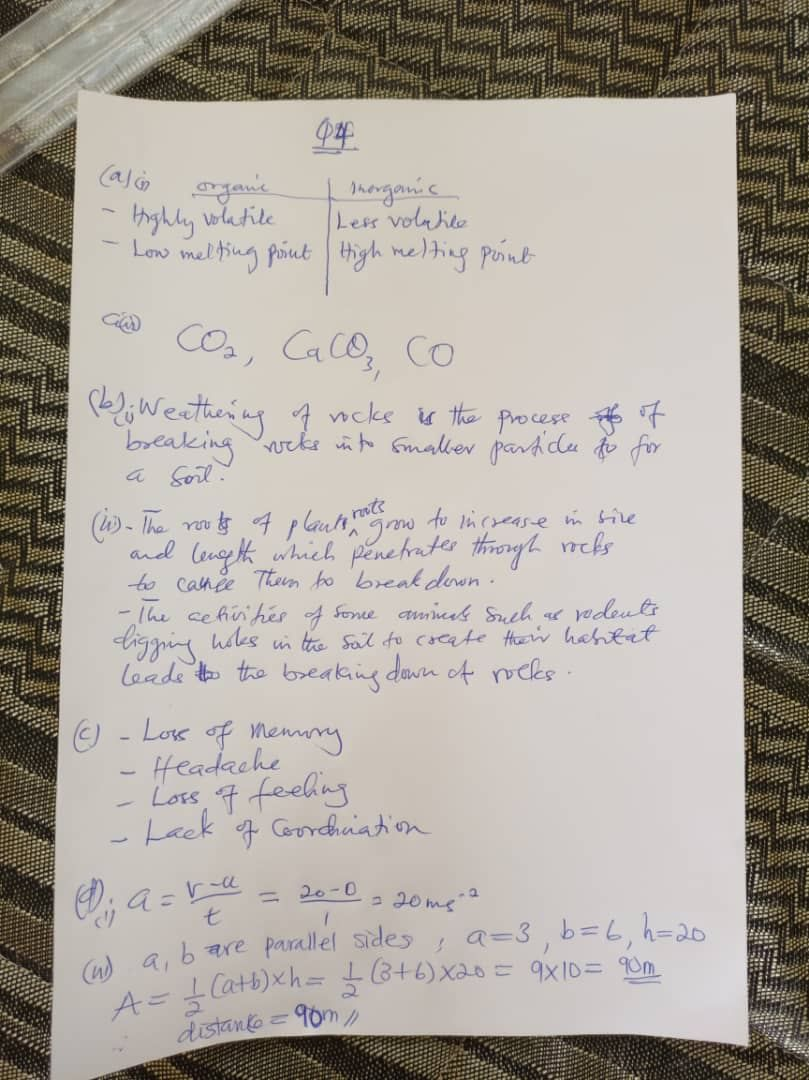 Q4
(a)(i) organic | Inorganic
- Highly volatile | Less volatile
- Low melting point | High melting point
a(ii) CO₂, CaCO₃, CO
(b)(i) Weathering of rocks is the process of
breaking rocks into smaller particles to for
a soil.
(ii) - The roots of plants roots grow to increase in size
and length which penetrates through rocks
to cause them to break down.
- The activities of some animals such as rodents
digging holes in the soil to create their habitat
leads to the breaking down of rocks.
(c) - Loss of memory
- Headache
- Loss of feeling
- Lack of Coordination
(d)(i) a = v-u/t = 20-0/1 = 20ms⁻²
(ii) a, b are parallel sides, a=3, b=6, h=20
A = 1/2 (a+b)×h = 1/2 (3+6)×20 = 9×10 = 90m
∴ distance = 90m //